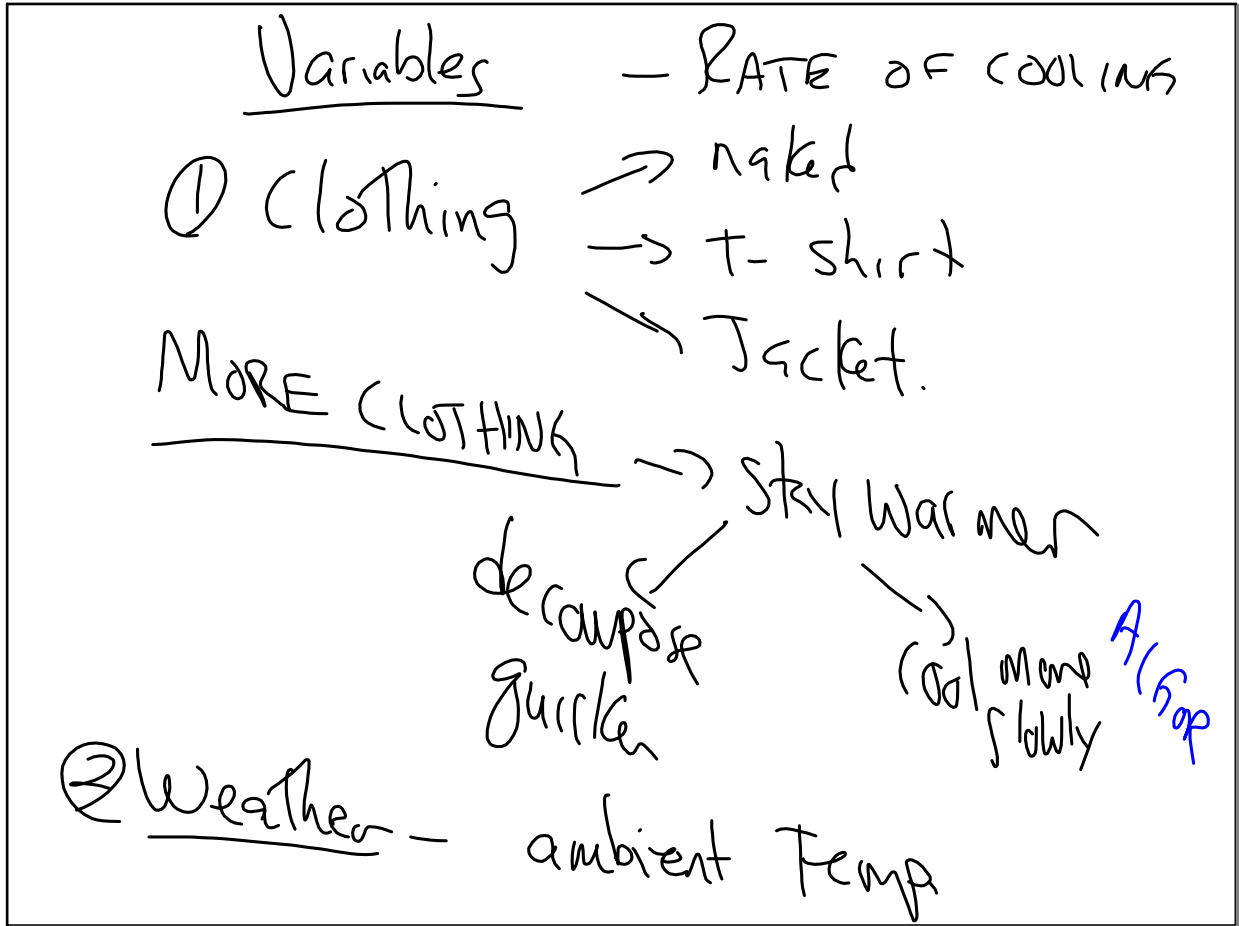 Variables - RATE OF COOLING
① Clothing → naked
→ T-shirt
→ Jacket.
MORE CLOTHING → Stay Warmer
decompose
quicker
Cool more
slowly
② Weather - ambient Temp